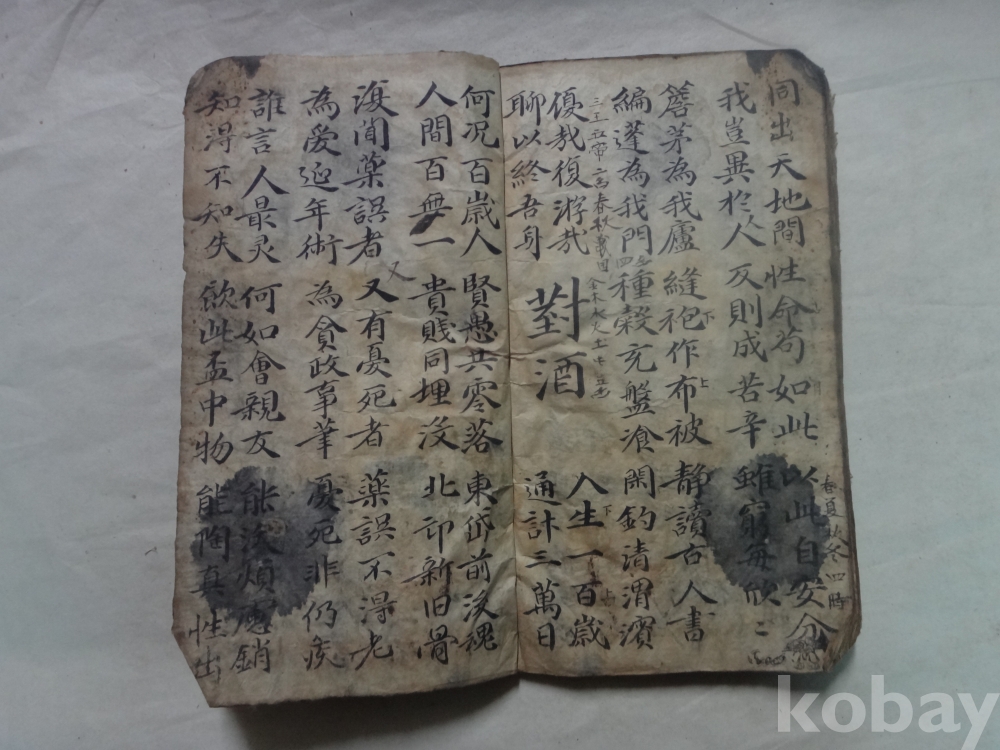 春夏秋冬四時
同出天地間 性命苟如此 以此自安分
我豈異於人 反則成苦辛 雖窮每欣二
茅為我廬 縫袍作布被 靜讀古人書
下 上
編蓬為我門 種穀充盤飡 閑釣清渭濱
優哉復游哉
聊以終吾身
對酒
人生一百歲
下 上
通計三萬日
何況百歲人 賢愚共零落 東岱前後魂
人間百無一 貴賤同埋沒 北邙新旧骨
復聞藥誤者 又有憂死者 藥誤不得老
又
為愛延年術 為貪政事筆 憂死非仍疾
誰言人最灵 何如會親友 能沃煩慮銷
知得不知失 飲此盃中物 能陶真性出
kobay